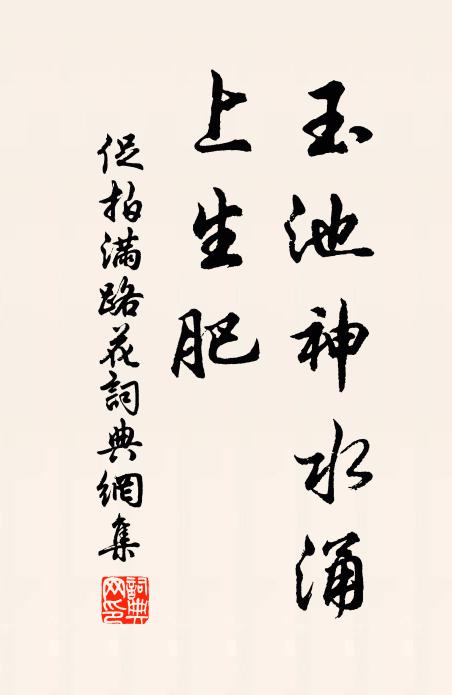 玉池神水涌
上生肥
促拍滿路花詞典網集
詞典
网印